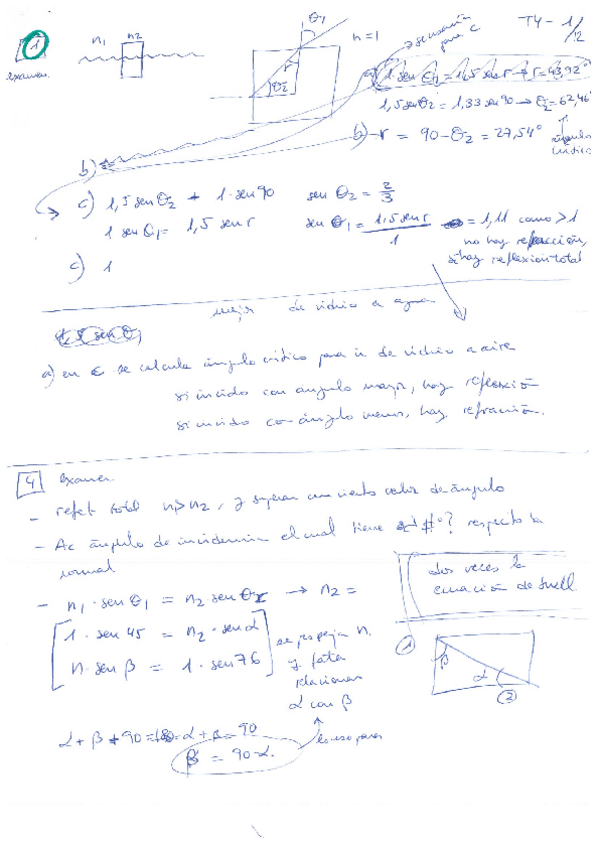 T4 - 1/12
1
examen
n₁ n₂
θ₁
n=1
r
θ₂
para c
a) 1 sen θ₁ = 1,5 sen r → r = 43,92°
1,5 sen θ₂ = 1,33 sen 90 → θ₂ = 62,46°
b) r = 90 - θ₂ = 27,54°
ángulo crítico
b)
c) 1,5 sen θ₂ = 1·sen 90 sen θ₂ = 2/3
1 sen θ₁ = 1,5 sen r sen θ₁ = 1,5 sen r / 1 = 1,11 como > 1
no hay refracción,
si hay reflexión total
c) 1
mejor de vidrio a agua
a) en c se calcula ángulo crítico para ir de vidrio a aire
si incido con angulo mayor, hay reflexión
si incido con ángulo menor, hay refracción.
4 examen
- reflex total n₁>n₂, y superar un cierto valor de ángulo
- Ac ángulo de incidencia el cual tiene #? respecto la
normal
- n₁ · sen θ₁ = n₂ sen θ₂ → n₂ =
1 · sen 45 = n₂ · sen α
n · sen β = 1 · sen 76
se despeja n.
y falta
relacionar
α con β
dos veces la
ecuación de Snell
1
β
α
2
α + β + 90 = 180 α + β = 90
β = 90 - α.